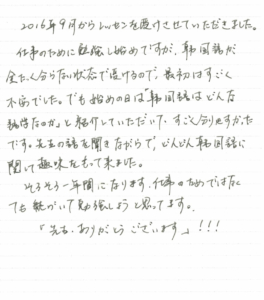 2016年9月からレッスンを受けさせていただきました。
仕事のために勉強し始めですが、韓国語が
全たく分らない状態で受けるので、最初はすごく
不安でした。でも始めの日は「韓国語はどんな
語学なのか」と紹介していただいて、すごく分りやすかった
です。先生の話を聞きながらで、どんどん韓国語に
関して趣味をもって来ました。
そろそろ一年間になります。仕事のためではなく
ても続いて勉強しようと思ってます。
「先生、ありがとうございます」!!!